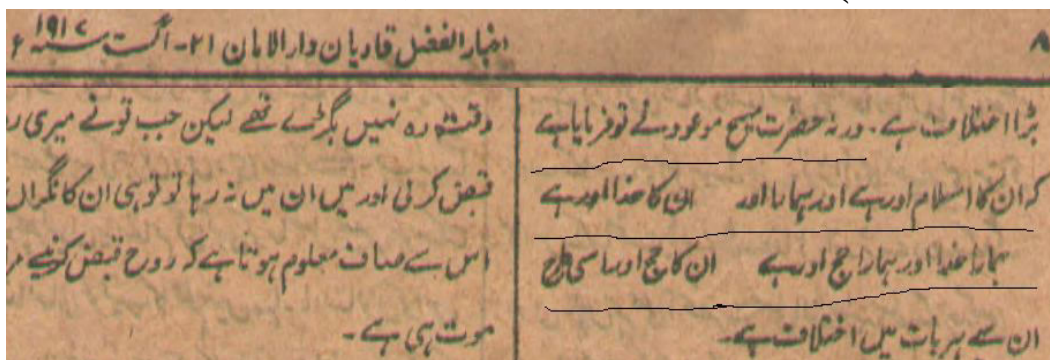 ۸
اخبار الفضل قادیان دارالامان ۲۱-اگست سنہ ۱۹۱۷ء
بڑا اختلاف ہے۔ ورنہ حضرت مسیح موعود نے تو فرمایا ہے
کہ ان کا اسلام اور ہے اور ہمارا اور ان کا خدا اور ہے
ہمارا خدا اور ہمارا حج اور ہے ان کا حج اور اسی طرح
ان سے ہر بات میں اختلاف ہے۔
وقت وہ نہیں بگڑے تھے لیکن جب تو نے میری
قبض کر لی اور میں ان میں نہ رہا تو تو ہی ان کا نگراں
اس سے صاف معلوم ہوتا ہے کہ روح قبض کرنیسے
موت ہی ہے۔